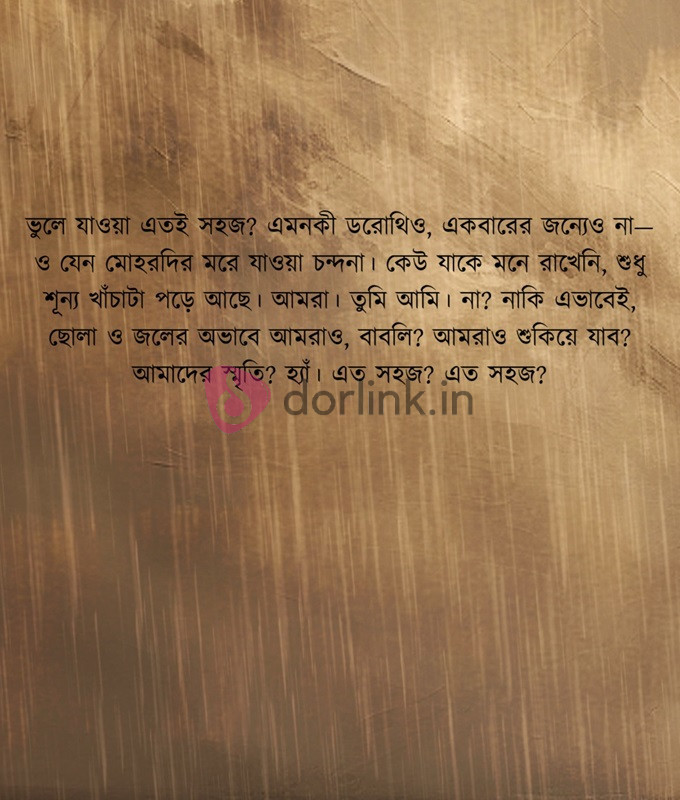 ভুলে যাওয়া এতই সহজ? এমনকী ডরোথিও, একবারের জন্যেও না—
ও যেন মোহরদির মরে যাওয়া চন্দনা। কেউ যাকে মনে রাখেনি, শুধু
শূন্য খাঁচাটা পড়ে আছে। আমরা। তুমি আমি। না? নাকি এভাবেই,
ছোলা ও জলের অভাবে আমরাও, বাবলি? আমরাও শুকিয়ে যাব?
আমাদের স্মৃতি? হ্যাঁ। এত সহজ? এত সহজ?
dorlink.in